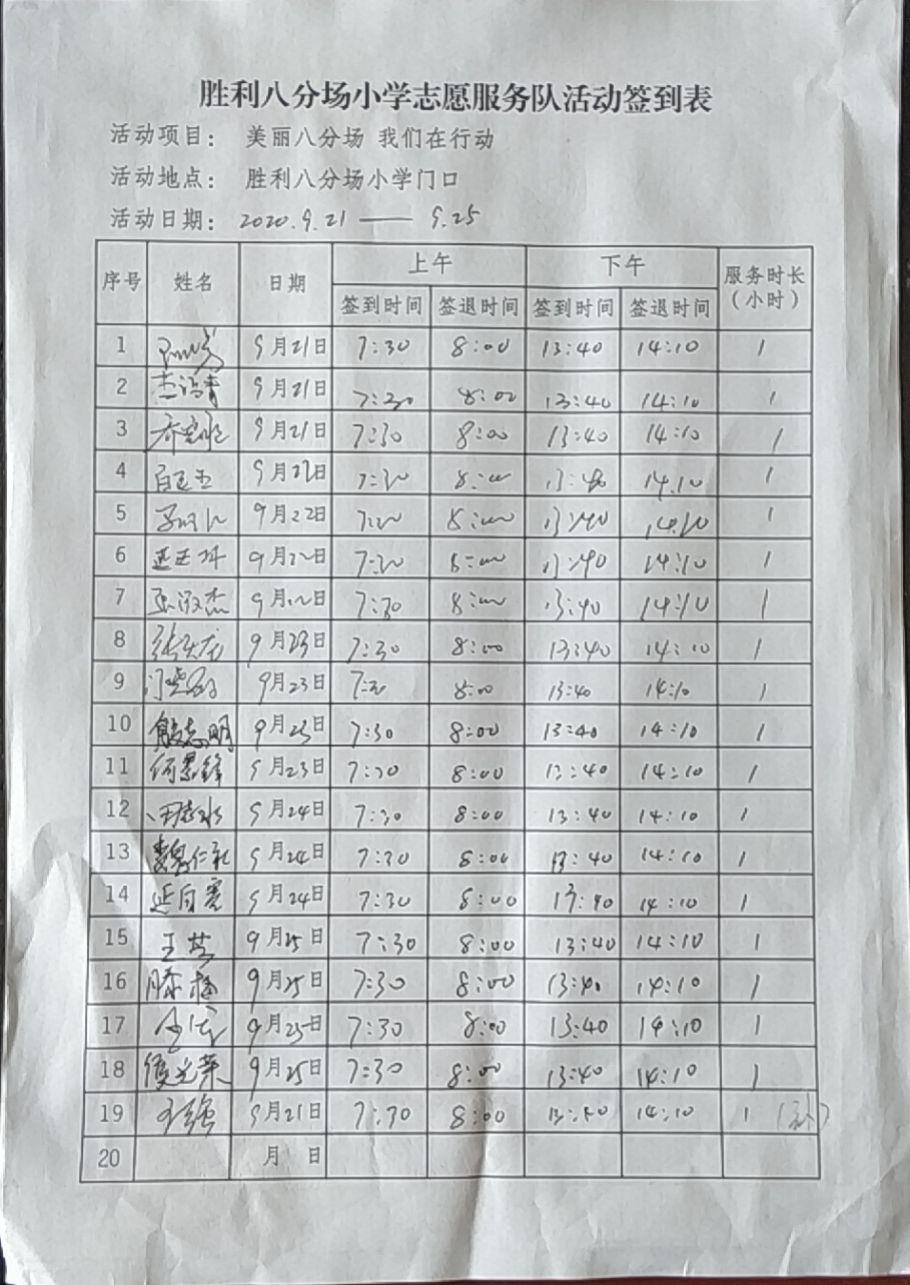 胜利八分场小学志愿服务队活动签到表
活动项目： 美丽八分场 我们在行动
活动地点： 胜利八分场小学门口
活动日期： 2020.9.21 —— 9.25
序号 姓名 日期 上午 下午 服务时长（小时）
签到时间 签退时间 签到时间 签退时间
1 9月21日 7:30 8:00 13:40 14:10 1
2 9月21日 7:30 8:00 13:40 14:10 1
3 9月21日 7:30 8:00 13:40 14:10 1
4 9月22日 7:30 8:00 13:40 14:10 1
5 9月22日 7:30 8:00 13:40 14:10 1
6 9月22日 7:30 8:00 13:40 14:10 1
7 9月22日 7:30 8:00 13:40 14:10 1
8 9月23日 7:30 8:00 13:40 14:10 1
9 9月23日 7:30 8:00 13:40 14:10 1
10 殷志明 9月23日 7:30 8:00 13:40 14:10 1
11 9月23日 7:30 8:00 13:40 14:10 1
12 9月24日 7:30 8:00 13:40 14:10 1
13 9月24日 7:30 8:00 13:40 14:10 1
14 9月24日 7:30 8:00 13:40 14:10 1
15 9月25日 7:30 8:00 13:40 14:10 1
16 9月25日 7:30 8:00 13:40 14:10 1
17 9月25日 7:30 8:00 13:40 14:10 1
18 9月25日 7:30 8:00 13:40 14:10 1
19 9月21日 7:30 8:00 13:40 14:10 1
20 月 日